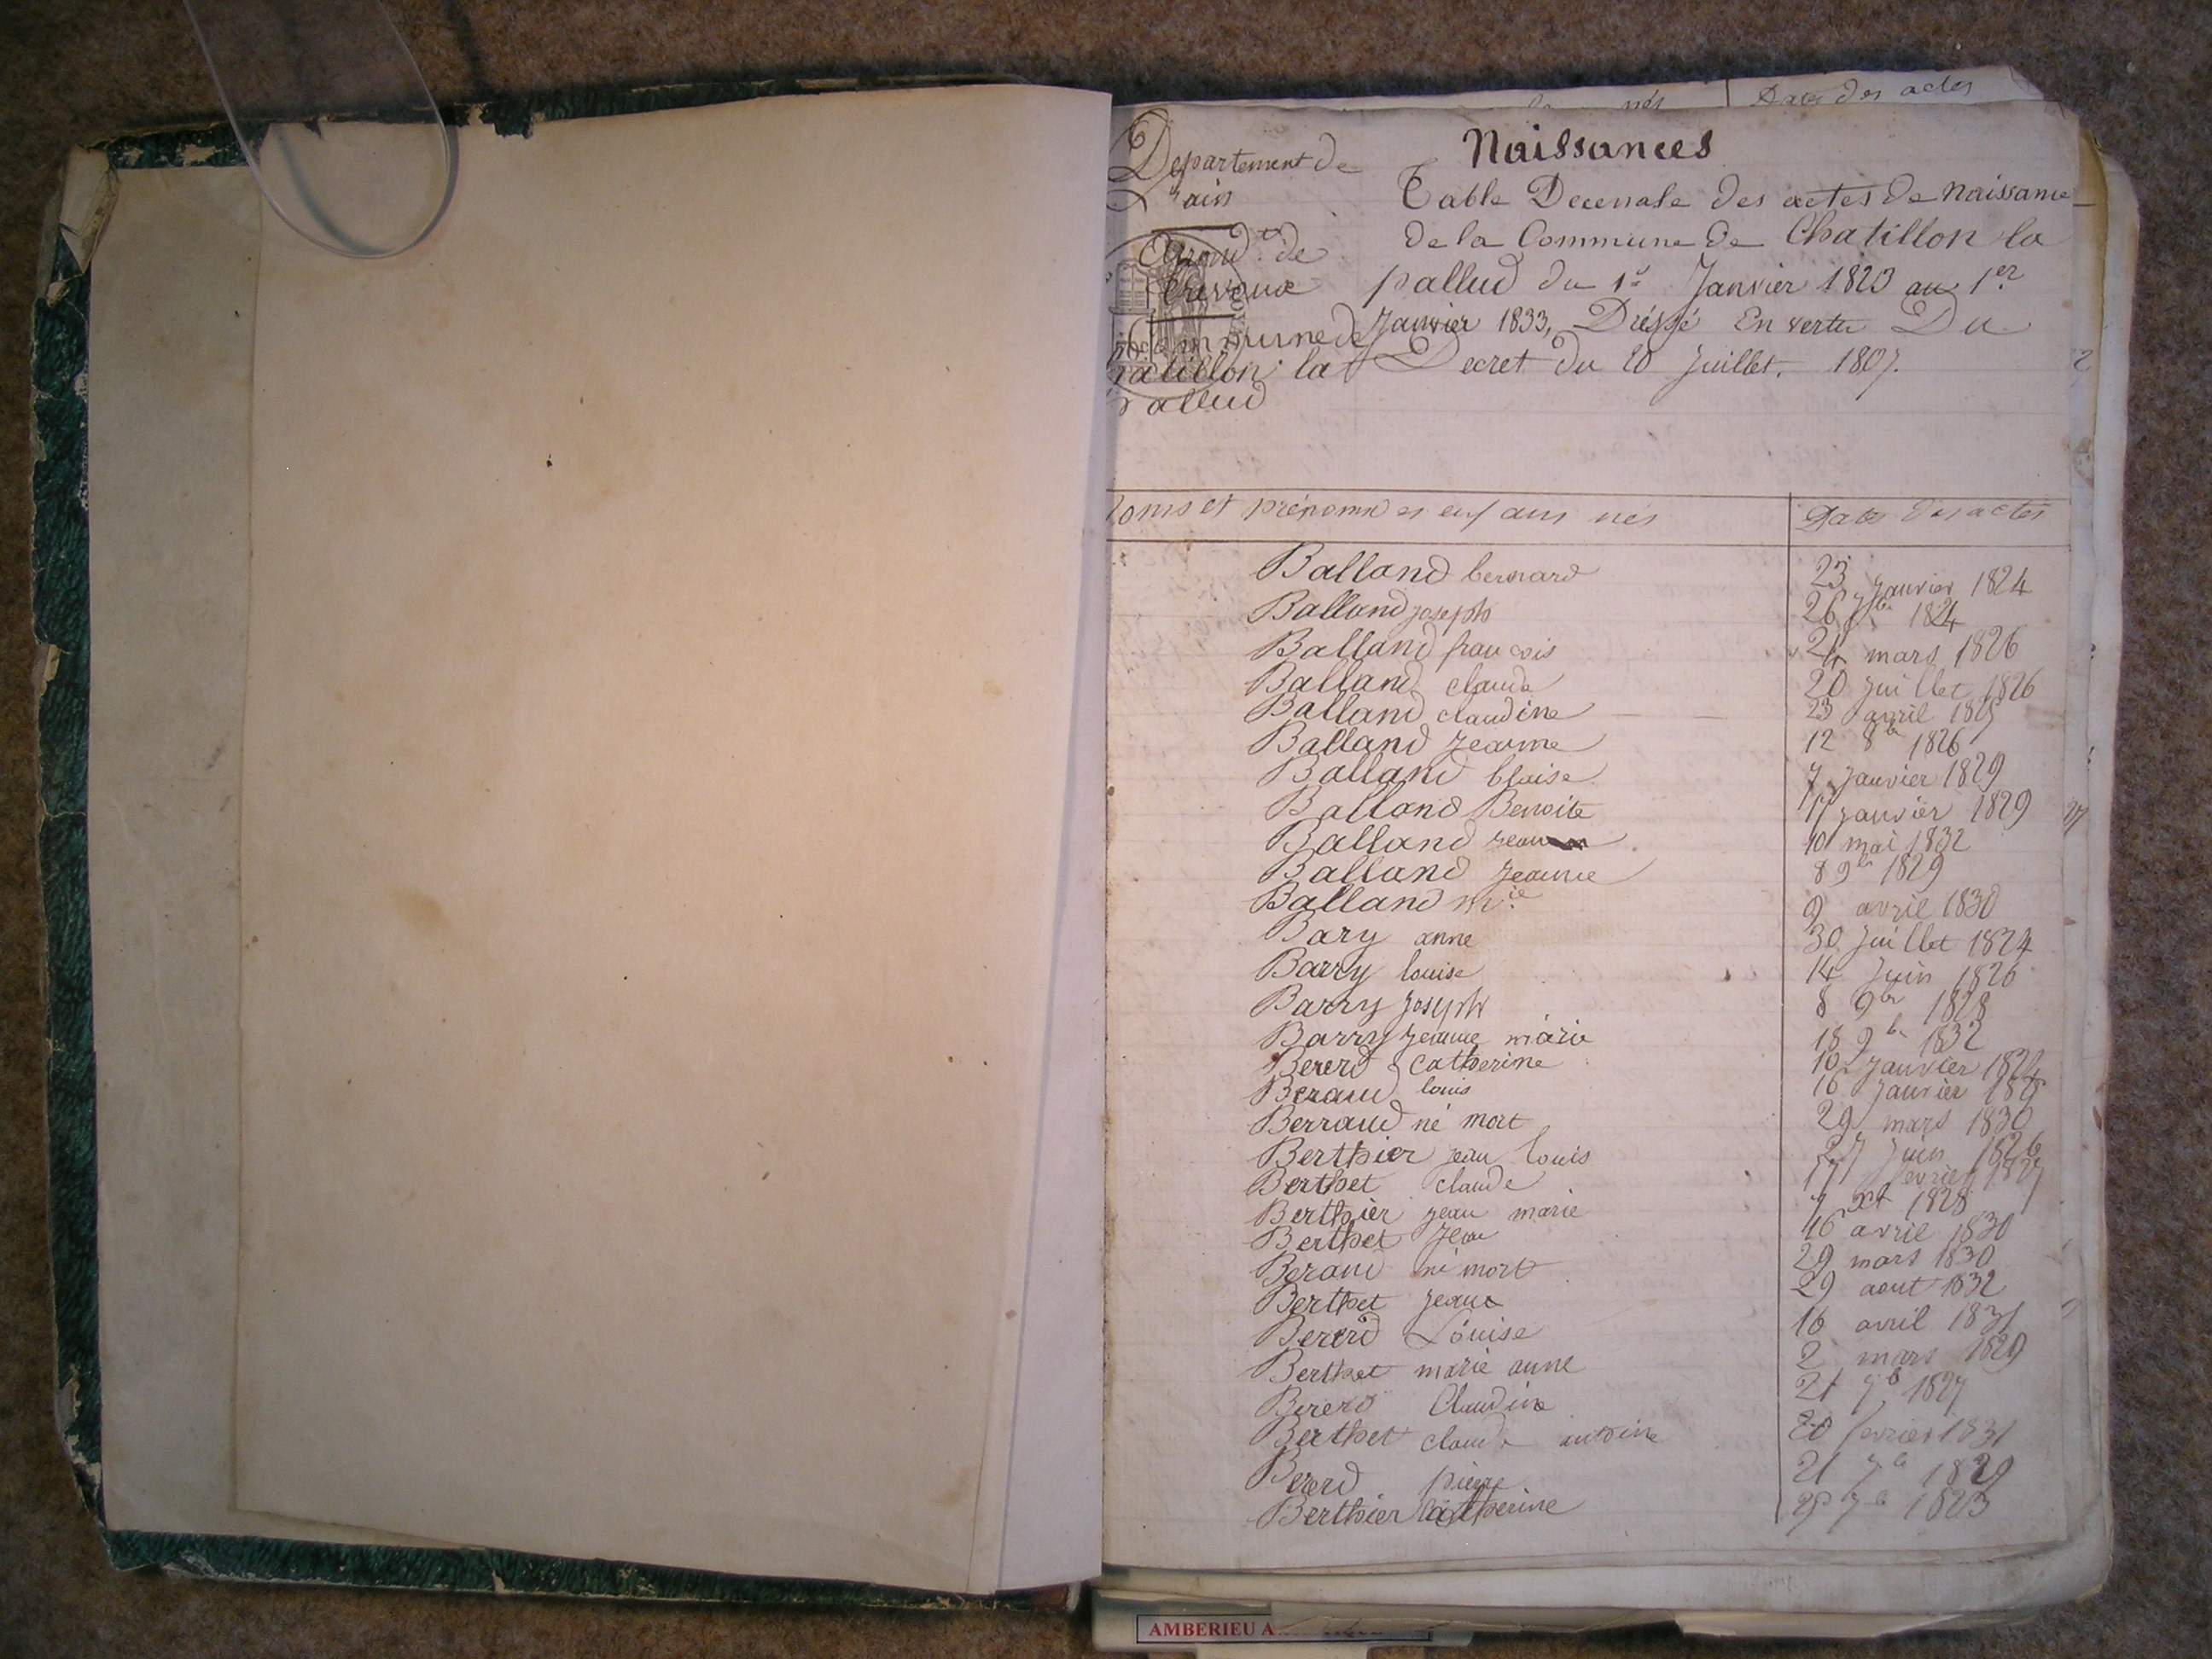 nés Date des actes
Departement de
L'ain
Arrond.t de
Trevoux
Commune de
Chatillon la
Pallud
Naissances
Table Decenale des actes de Naissance
de la Commune de Chatillon la
pallud du 1er Janvier 1823 au 1er
Janvier 1833, Dréssé En vertu Du
Decret du 20 Juillet. 1807.
Noms et prénoms des enfans nés Date des actes
Balland bernard 23 Janvier 1824
Balland joseph 26 7bre 1824
Balland francois 24 mars 1826
Balland claude 20 Juillet 1826
Balland claudine 23 avril 1825
Balland Jeanne 12 8bre 1826
Balland blaise 7 Janvier 1829
Balland Benoite 17 janvier 1829
Balland jean 10 mai 1832
Balland Jeanne 8 9bre 1829
Balland mie 9 avril 1830
Bary anne 30 Juillet 1824
Barry louise 14 Juin 1826
Barry Joseph 8 9bre 1828
Barry jeanne marie 18 9bre 1832
Bererd Catherine 10 Janvier 1824
Beraud louis 16 Janvier 1828
Berraud né mort 29 mars 1830
Berthier jean louis 27 Juin 1826
Berthet claude 17 fevrier 1827
Berthier jean marie 7 xbre 1828
Berthet Jean 16 avril 1830
Beraud né mort 29 mars 1830
Berthet Jean 29 aout 1832
Bererd Louise 16 avril 1831
Berthet marie anne 2 mars 1829
Bererd Claudine 21 7b 1827
Berthet claude antoine 20 fevrier 1831
Bererd pierre 21 7b 1829
Berthier Catherine 7b 1823
AMBERIEU